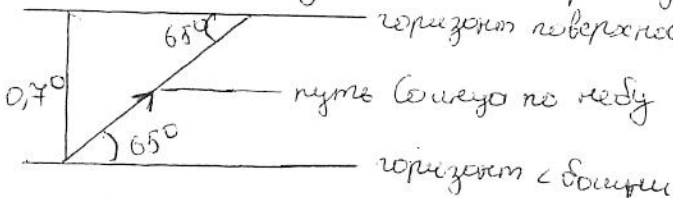 65° горизонт поверхнос
0,7° путь Солнца по небу
65°
горизонт с башни